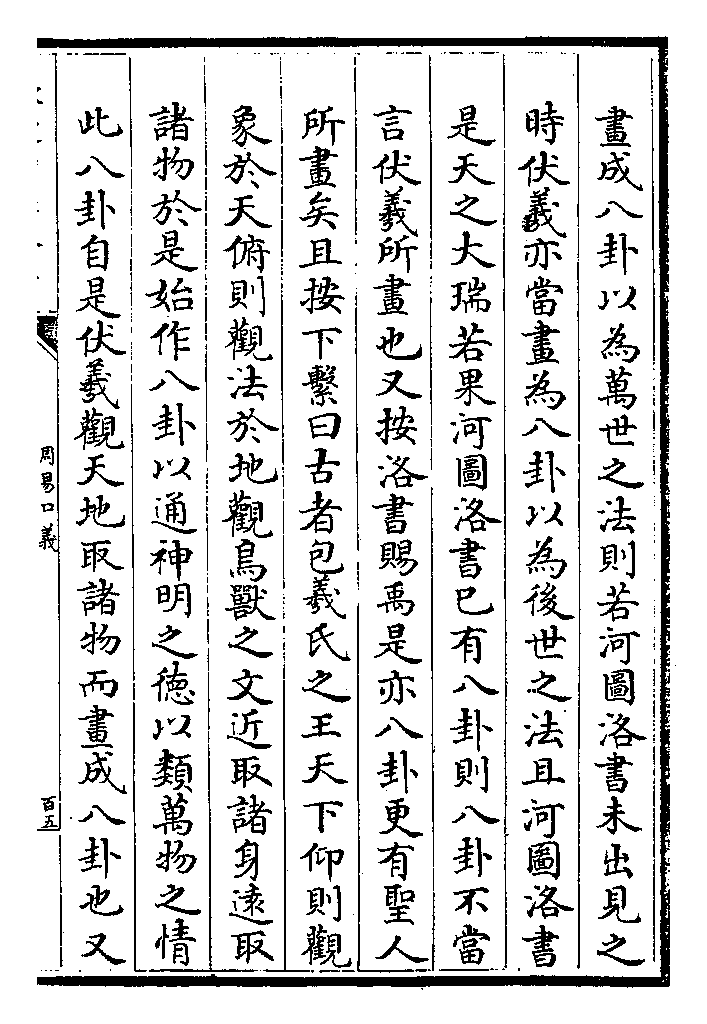 畫成八卦以為萬世之法則若河圖洛書未出見之
時伏羲亦當畫為八卦以為後世之法且河圖洛書
是天之大瑞若果河圖洛書巳有八卦則八卦不當
言伏羲所畫也又按洛書賜禹是亦八卦更有聖人
所畫矣且按下繫曰古者包羲氏之王天下仰則觀
象於天俯則觀法於地觀鳥獸之文近取諸身逺取
諸物於是始作八卦以通神明之徳以類萬物之情
此八卦自是伏羲觀天地取諸物而畫成八卦也又
周易口義
百五